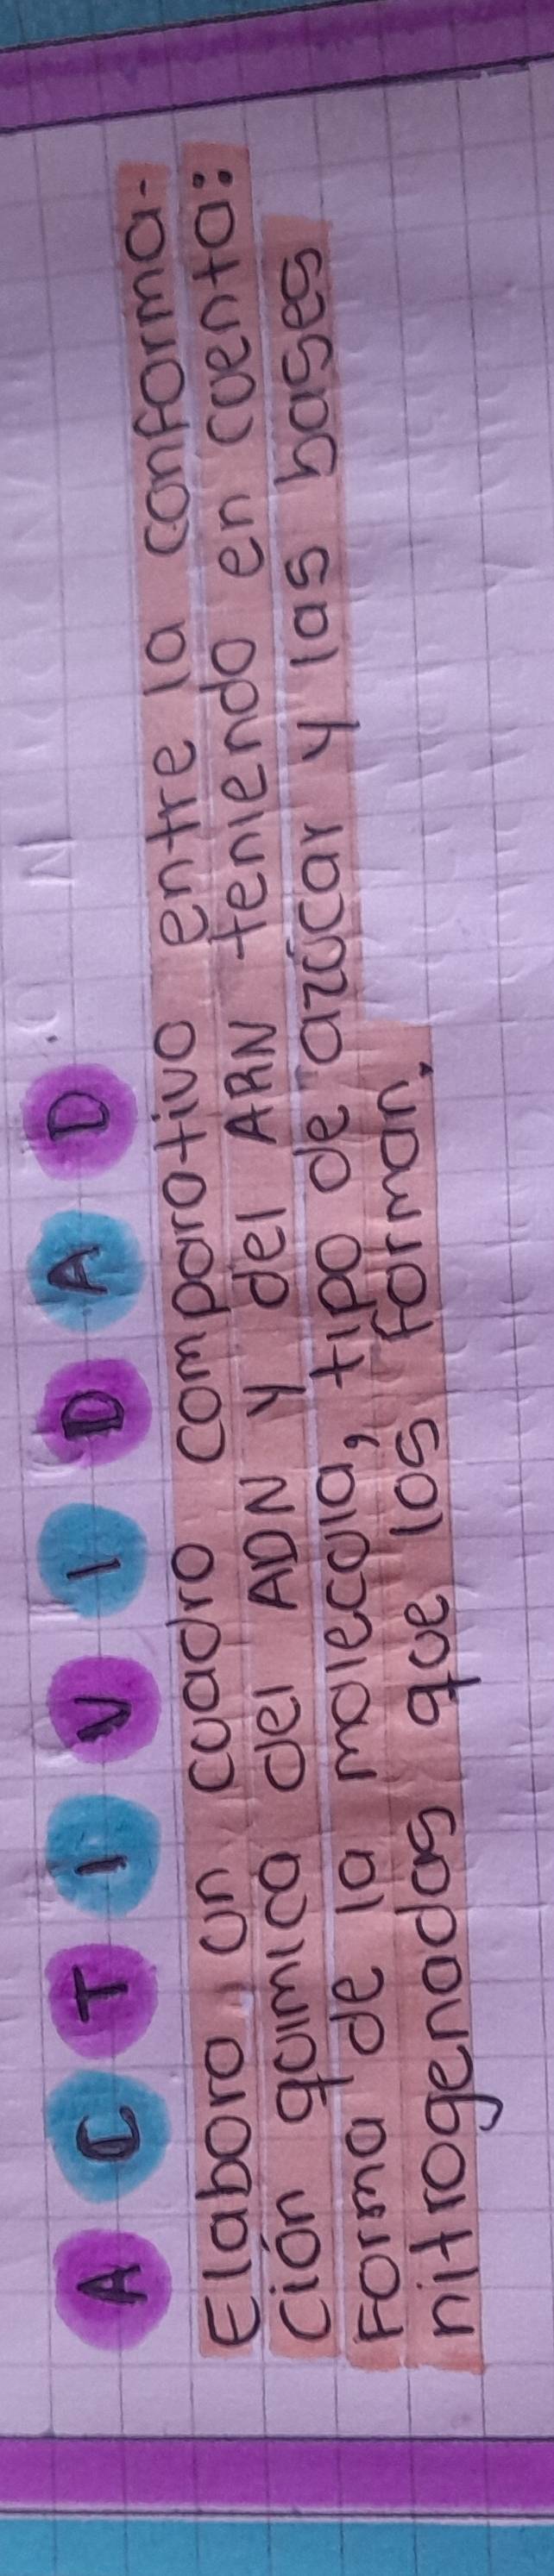 ACTIVIDAD
Elaboro un cuadro comparativo entre la conforma-
ción química del ADN y del ARN teniendo en cuenta:
Forma de la molécula, tipo de azúcar y las bases
nitrogenadas que los forman.